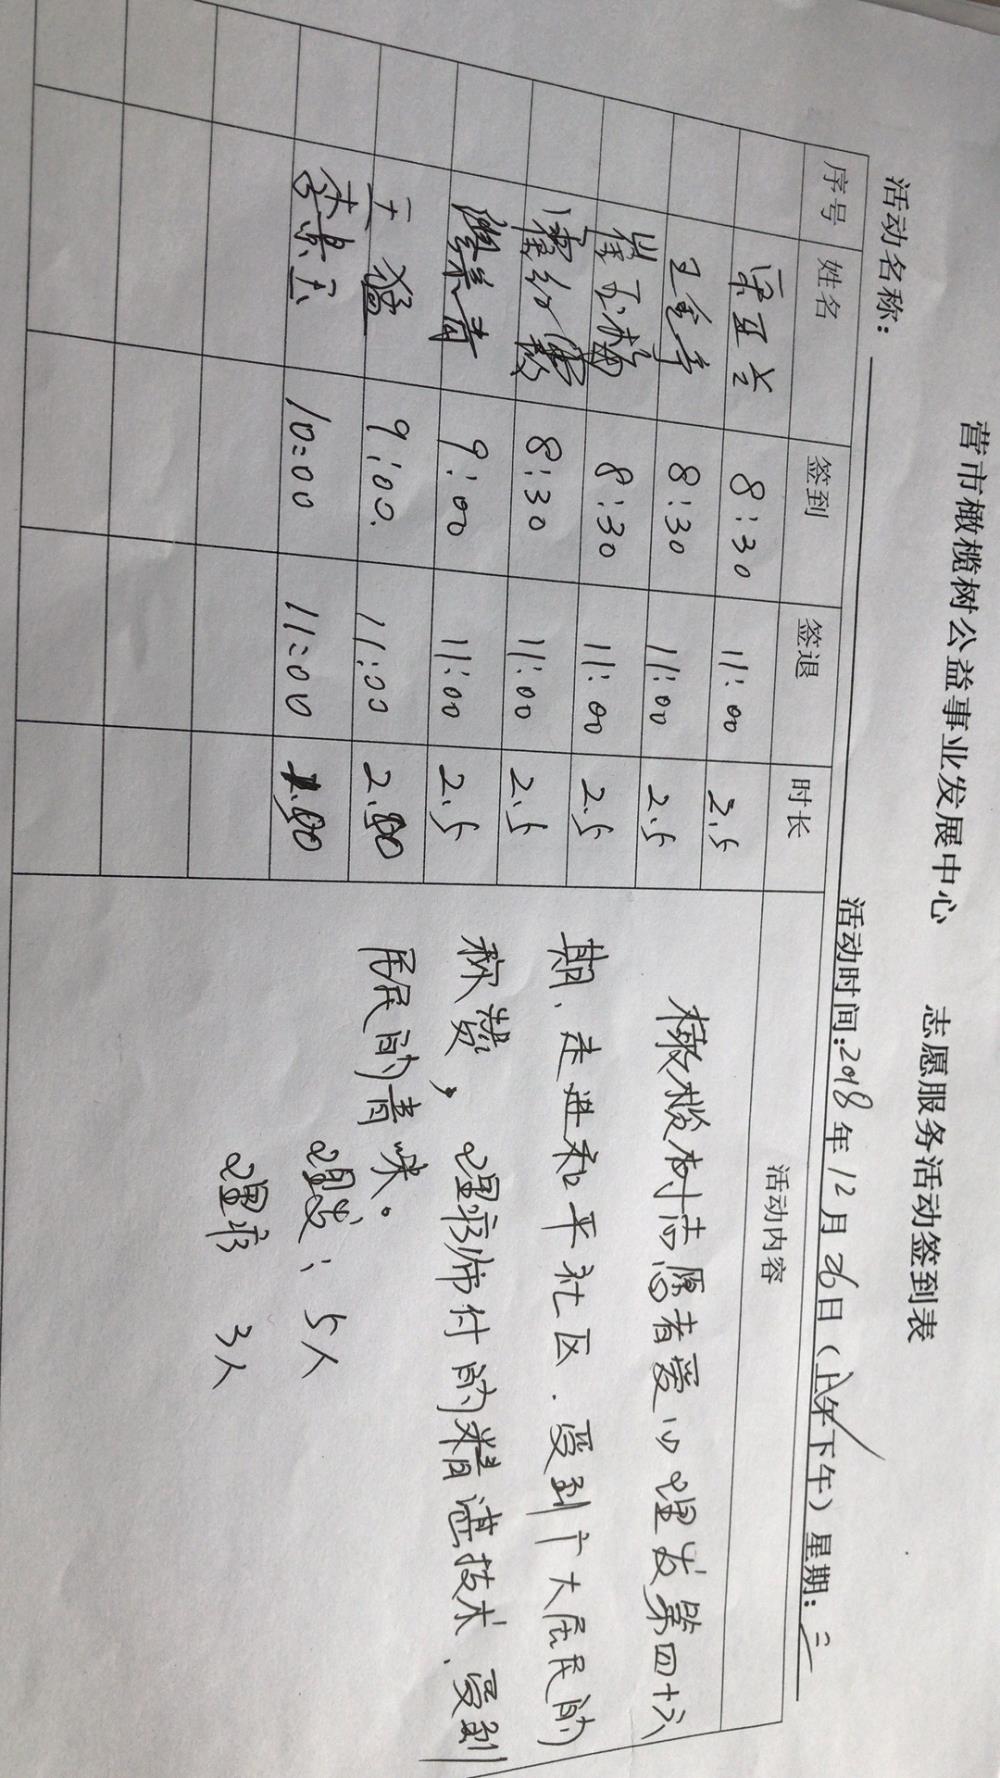 营市橄榄树公益事业发展中心 志愿服务活动签到表
活动名称: 活动时间:2018年12月26日(上午下午)星期:三
序号 姓名 签到 签退 时长 活动内容
8:30 11:00 2.5
王金亭 8:30 11:00 2.5
崔玉梅 8:30 11:00 2.5
8:30 11:00 2.5
9:00 11:00 2.5
王猛 9:00. 11:00 2.00
李景云 10:00 11:00 1.00
橄榄树志愿者爱心理发第四十六
期、走进和平社区.受到广大居民的
称赞,理疗师付的精湛技术、受到
居民的青睐。
理发: 5人
理疗 3人